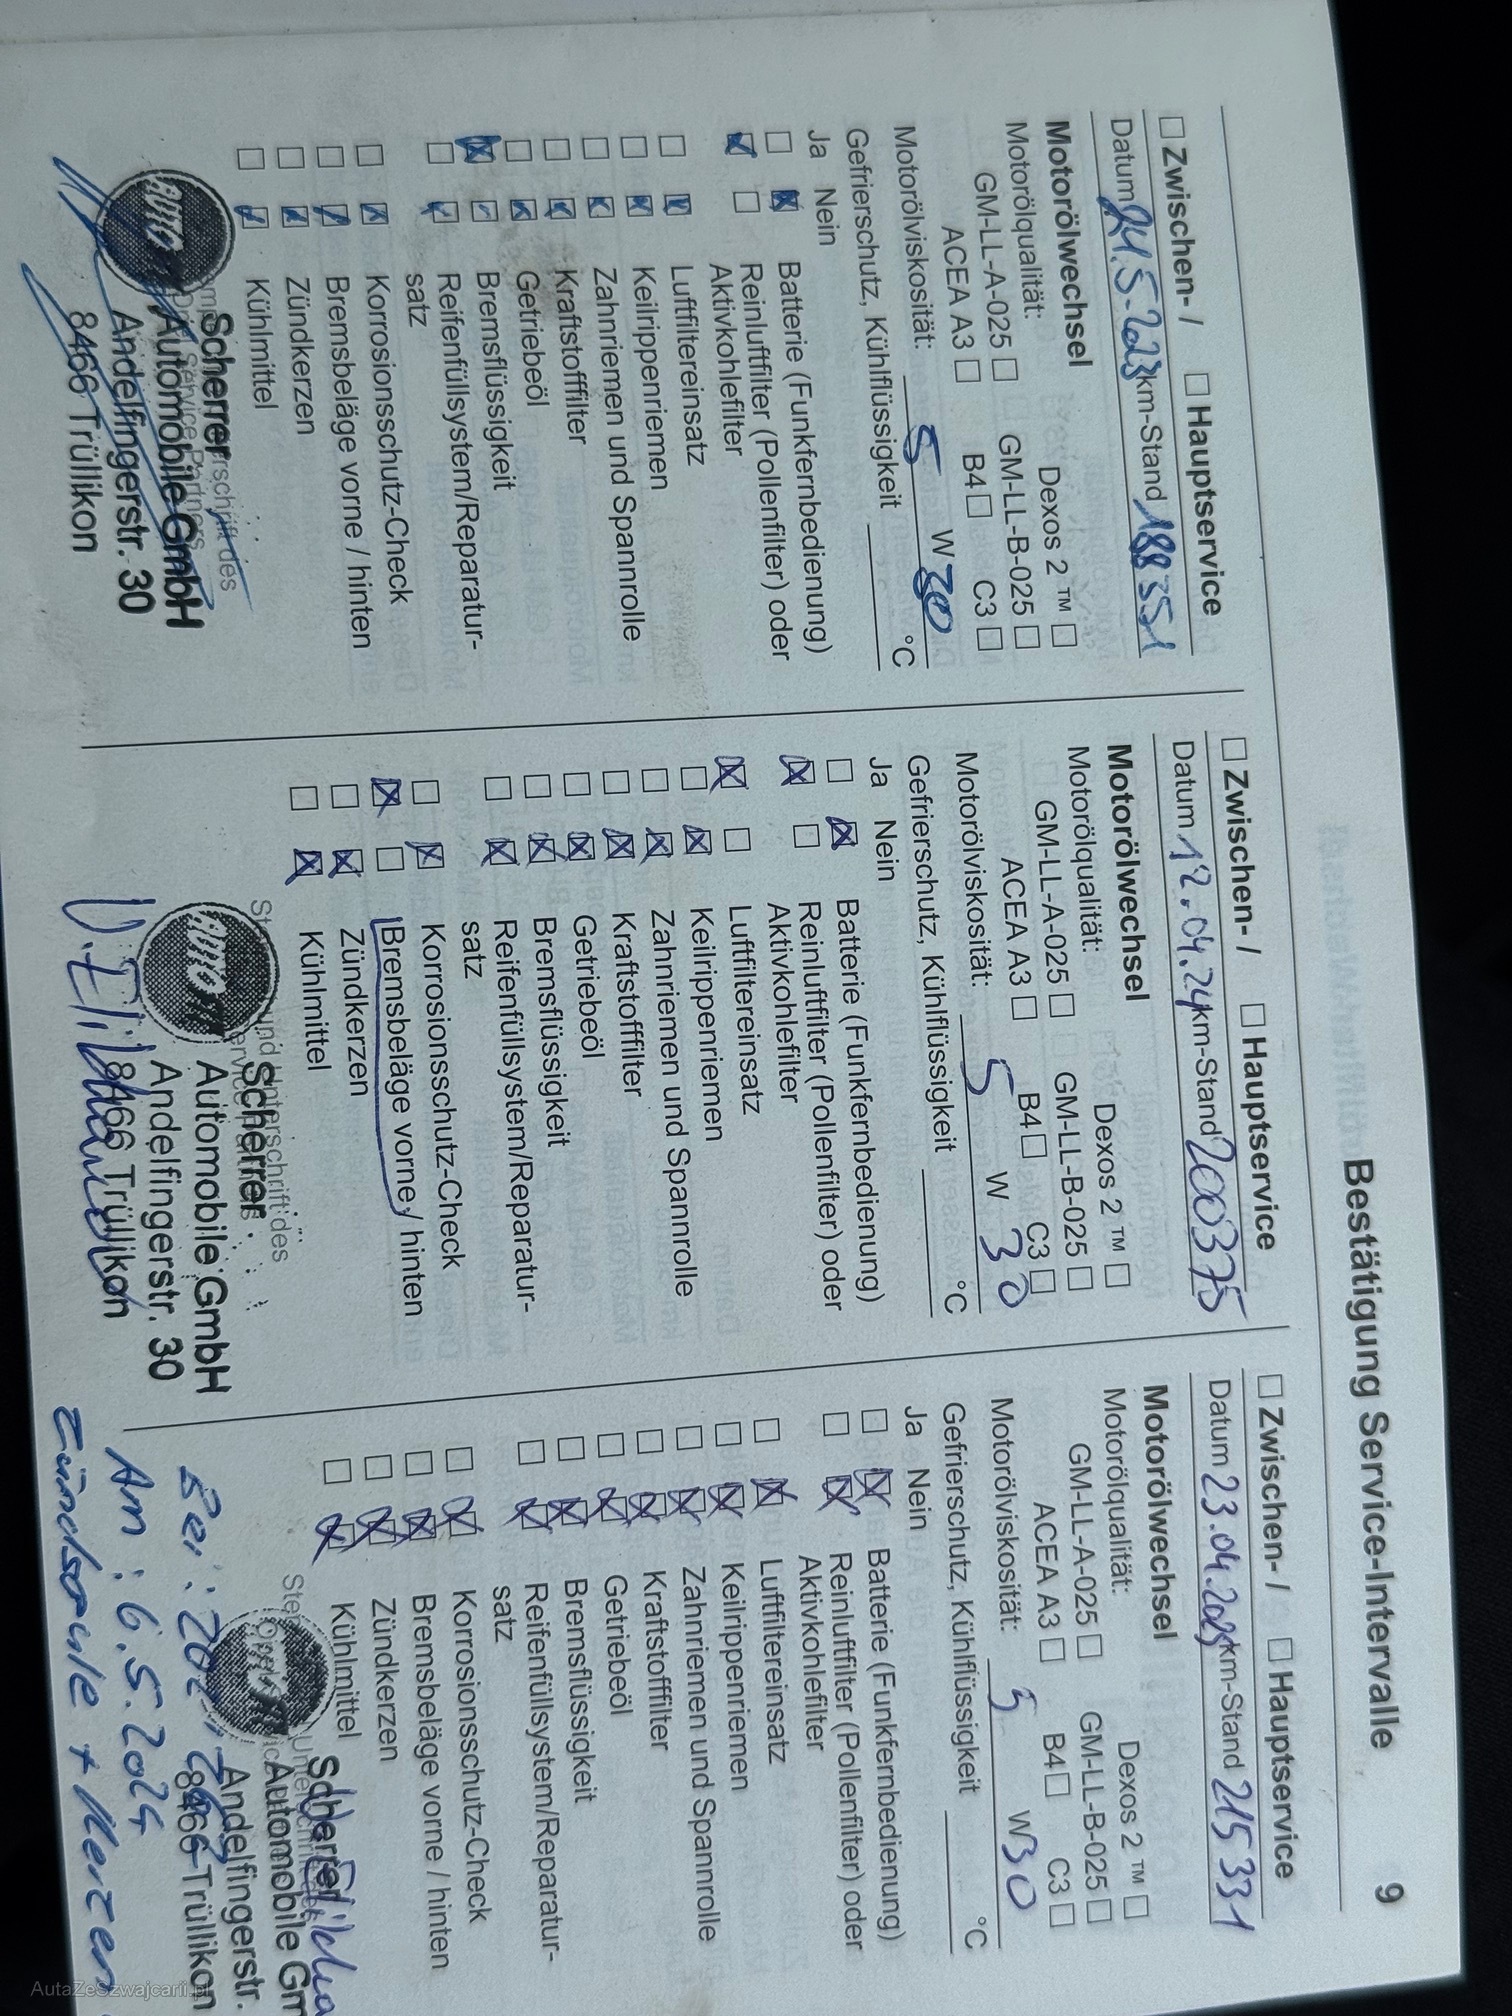 Bestätigung Service-Intervalle 9
☐ Zwischen- / ☐ Hauptservice
Datum 24.5.2023 km-Stand 188351
Motorölwechsel
Motorölqualität: Dexos 2 ™ ☐
GM-LL-A-025 ☐ GM-LL-B-025 ☐
ACEA A3 ☐ B4 ☐ C3 ☐
Motorölviskosität: 5 W 30
Gefrierschutz, Kühlflüssigkeit °C
Ja Nein
☐ ☒ Batterie (Funkfernbedienung)
☒ ☐ Reinluftfilter (Pollenfilter) oder
Aktivkohlefilter
☐ ☒ Luftfiltereinsatz
☐ ☒ Keilrippenriemen
☐ ☒ Zahnriemen und Spannrolle
☐ ☒ Kraftstofffilter
☐ ☒ Getriebeöl
☒ ☐ Bremsflüssigkeit
☐ ☒ Reifenfüllsystem/Reparatur-
satz
☐ ☒ Korrosionsschutz-Check
☐ ☒ Bremsbeläge vorne / hinten
☐ ☒ Zündkerzen
☐ ☒ Kühlmittel
Scherrer
Automobile GmbH
Andelfingerstr. 30
8466 Trüllikon
☐ Zwischen- / ☐ Hauptservice
Datum 12.04.24 km-Stand 200375
Motorölwechsel
Motorölqualität: Dexos 2 ™ ☐
GM-LL-A-025 ☐ GM-LL-B-025 ☐
ACEA A3 ☐ B4 ☐ C3 ☐
Motorölviskosität: 5 W 30
Gefrierschutz, Kühlflüssigkeit °C
Ja Nein
☐ ☒ Batterie (Funkfernbedienung)
☒ ☐ Reinluftfilter (Pollenfilter) oder
Aktivkohlefilter
☒ ☐ Luftfiltereinsatz
☐ ☒ Keilrippenriemen
☐ ☒ Zahnriemen und Spannrolle
☐ ☒ Kraftstofffilter
☐ ☒ Getriebeöl
☐ ☒ Bremsflüssigkeit
☐ ☒ Reifenfüllsystem/Reparatur-
satz
☐ ☒ Korrosionsschutz-Check
☒ ☐ Bremsbeläge vorne / hinten
☐ ☒ Zündkerzen
☐ ☒ Kühlmittel
Scherrer
Automobile GmbH
Andelfingerstr. 30
8466 Trüllikon
☐ Zwischen- / ☐ Hauptservice
Datum 23.04.2025 km-Stand 215331
Motorölwechsel
Motorölqualität: Dexos 2 ™ ☐
GM-LL-A-025 ☐ GM-LL-B-025 ☐
ACEA A3 ☐ B4 ☐ C3 ☐
Motorölviskosität: 5 W 30
Gefrierschutz, Kühlflüssigkeit °C
Ja Nein
☐ ☒ Batterie (Funkfernbedienung)
☐ ☒ Reinluftfilter (Pollenfilter) oder
Aktivkohlefilter
☐ ☒ Luftfiltereinsatz
☐ ☒ Keilrippenriemen
☐ ☒ Zahnriemen und Spannrolle
☐ ☒ Kraftstofffilter
☐ ☒ Getriebeöl
☐ ☒ Bremsflüssigkeit
☐ ☒ Reifenfüllsystem/Reparatur-
satz
☐ ☒ Korrosionsschutz-Check
☐ ☒ Bremsbeläge vorne / hinten
☐ ☒ Zündkerzen
☐ ☒ Kühlmittel
Scherrer
Automobile Gm
Andelfingerstr.
8466 Trüllikon
Bei:
Am: 6.5.2024
Zündspule + Kerzen
AutaZeSzwajcarii.pl